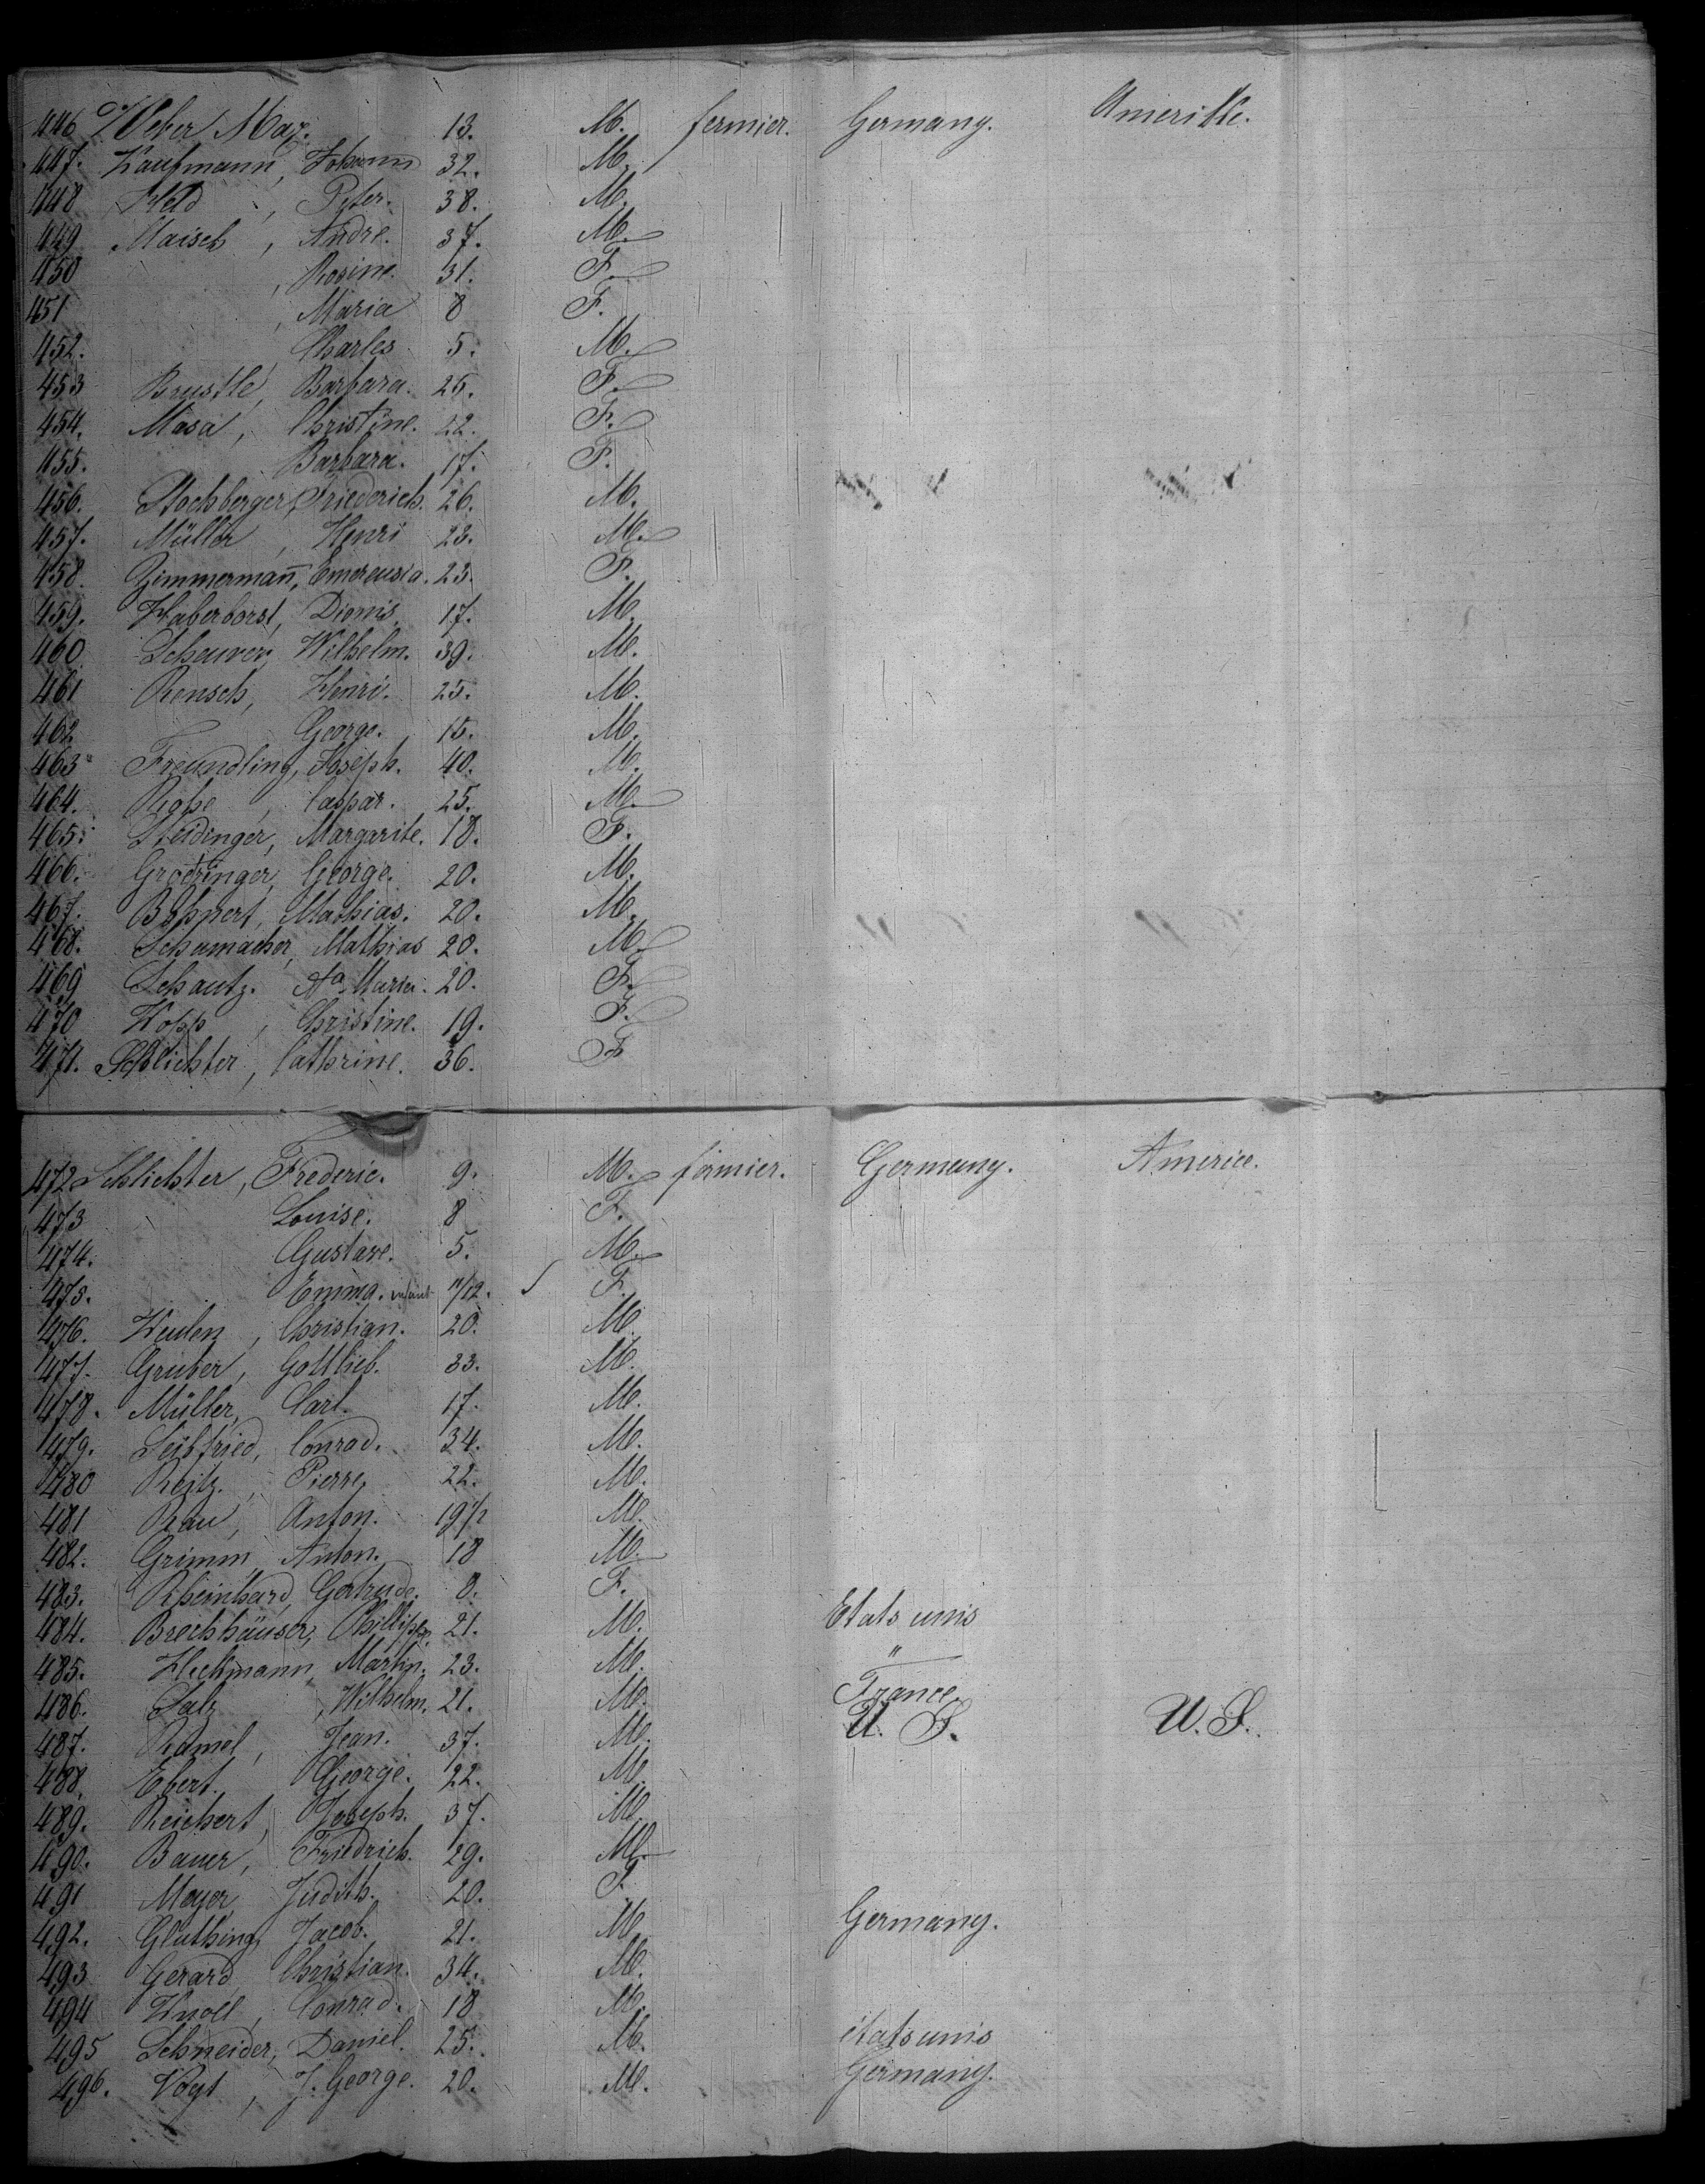 446 Weber Max. 13. M. fermier. Germany. Amerike.
447. Kaufmann, Johann 32. M.
448 Held, Peter. 38. M.
449 Maisch, Andre. 37. M.
450 , Rosine. 31. F.
451 , Maria 8 F.
452. Charles 5. M.
453 Brustle, Barbara. 25. F.
454. Masa, Christine. 22. F.
455. Barbara. 17. F.
456. Stochberger, Friederich. 26. M.
457. Müller, Henri 23. M.
458. Zimmermañ, Emerensia. 23. F.
459. Haberborst, Dionis. 17. M.
460 Scheurer, Wilhelm. 39. M.
461 Rensch, Henri. 25. M.
462 George. 15. M.
463 Freundling, Joseph. 40. M.
464. Caspar. 25. M.
465. Heidinger, Margarite. 18. F.
466. Grozinger, George. 20. M.
467. Boppert, Mathias. 20. M.
468. Schumacher, Mathias 20. M.
469 Schautz. Aa Maria. 20. F.
470 Kopp, Christine. 19. F.
471. Schlichter, Cathrine. 36. F
472 Schlichter, Frederic. 9. M. fermier. Germany. Americe.
473 Louise. 8 F.
474. Gustave. 5. M.
475. Emma. infant 11/12. F.
476. Christian. 20. M.
477. Gruber, Gottlieb. 33. M.
478. Müller, Carl. 17. M.
479. Seibfried, Conrad. 34. M.
480 Reitz, Pierre, 22. M.
481 Rau, Anton. 19 1/2 M.
482. Grimm, Anton. 18 M.
483. Rheinhard, Gertrude. 8. F.
484. Brechhäuser, Phillipp. 21. M. Etats unis
485. Heckmann, Martin. 23. M. "
486. Salz, Wilhelm. 21. M. France.
487. Ramel, Jean. 37. M. U. S. U. S.
488. Ebert. George. 22. M.
489. Reichert, Joseph. 37. M.
490. Bauer, Friedrich. 29. M.
491 Meyer, Judith. 20. F.
492. Gluthing, Jacob. 21. M. Germany.
493 Gerard, Christian. 34. M.
494 Knoll, Conrad. 18 M.
495 Schneider, Daniel. 25. M. états unis
496. Vogt, J. George. 20. M. Germany.